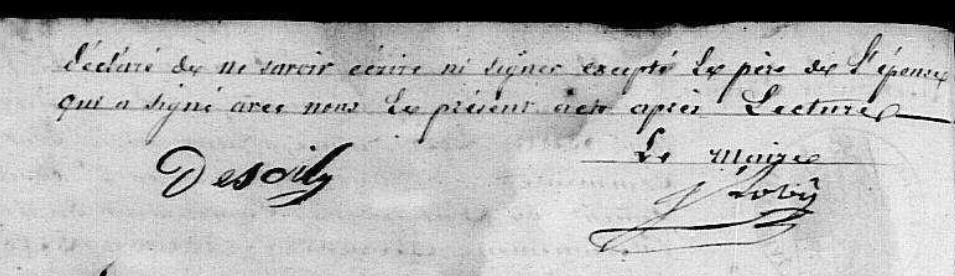 déclaré de ne savoir écrire ni signer excepté le père de l'épouse
qui a signé avec nous le présent acte après Lecture
Le Maire
Desoily